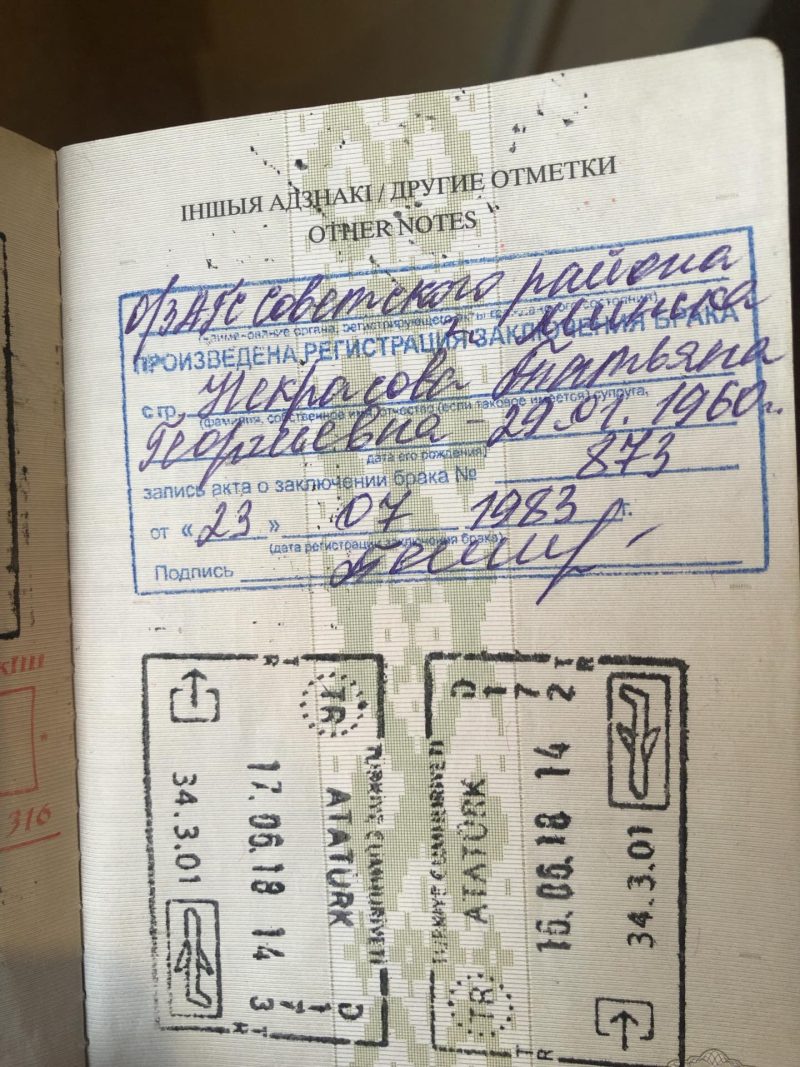 ІНШЫЯ АДЗНАКІ / ДРУГИЕ ОТМЕТКИ
OTHER NOTES
О/ЗАГС Советского района
г. Минска
ПРОИЗВЕДЕНА РЕГИСТРАЦИЯ ЗАКЛЮЧЕНИЯ БРАКА
с гр. Некрасова Татьяна
(фамилия, собственное имя, отчество (если таковое имеется) супруга,
Георгиевна - 29.01.1960 г.
дата его рождения)
запись акта о заключении брака № 873
от «23» 07 1983 г.
(дата регистрации заключения брака)
Подпись
TR
TR
TÜRKİYE CUMHURİYETİ
ATATÜRK
17.06.18 14
34.3.01
D
173
TR
TR
D
172
TR
ATATÜRK
16.06.18 14
34.3.01
TR
TR
316